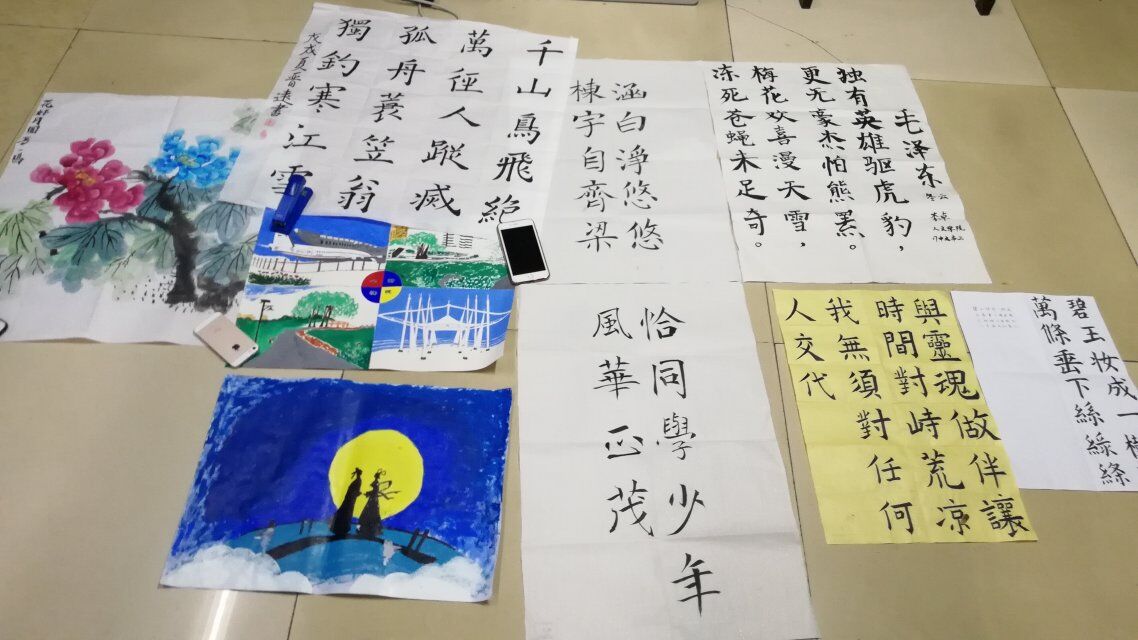 千山鳥飛絕
萬徑人蹤滅
孤舟蓑笠翁
獨釣寒江雪
涵白淨悠悠
棟字自齊梁
毛泽东
冬云
独有英雄驱虎豹，
更无豪杰怕熊罴。
梅花欢喜漫天雪，
冻死苍蝇未足奇。
李卓
人文学院
恰同學少年
風華正茂
與靈魂做伴讓
時間對峙荒凉
我無須對任何
人交代
碧玉妆成一
萬條垂下絲綠絛